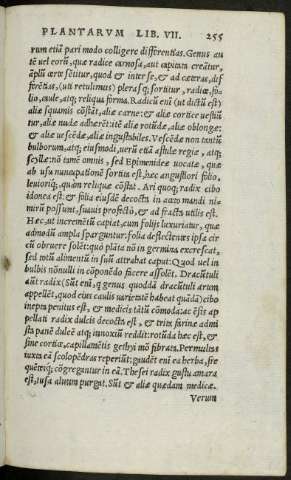 PLANTARVM LIB. VII. 255
rum etiã pari modo colligere differentias. Genus au
tẽ uel eorũ, quæ radice carnosa, aut capitata creãtur,
ampliꝰ certe sẽtitur, quod & inter se, & ad cæteras, dif
ferẽtias, (uti retulimus) plerasq; sortitur, radice, fo-
lio, caule, atq; reliqua forma. Radicũ eni (ut dictũ est)
aliæ squamis cõstãt, aliæ carne: et aliæ cortice uestiũ
tur, aliæ nudæ adherẽt: itẽ aliæ rotũdæ, aliæ oblongæ:
& aliæ uescẽdæ, aliæ ingustabiles. Vescẽdæ non tantũ
bulborum, atq; eiusmodi, uerũ etiã asthilæ regiæ, atq;
scyllæ: nõ tamẽ omnis, sed Epimenideæ uocatæ, quæ
ab usu nuncupationẽ sortita est, hæc angustiori folio,
leuioriq;, quàm reliquæ cõstãt. Ari quoq; radix cibo
idonea est: & folia eiusdẽ decocta in aceto mandi ni-
mirũ possunt, suauis profectò, & ad fracta utilis est.
Hæc, ut incremẽtũ capiat, cum folijs luxuriatur, quæ
admodũ ampla sparguntur: folia deflectentes ipsa cir
cũ obruere solẽt: quò plãta nõ in germina excrescat,
sed totũ alimentũ in suũ attrahat caput: Quod uel in
bulbis nõnulli in cõponẽdo facere assolẽt. Dracũtuli
aũt radix (Sũt eni, q genus quoddã dracũtuli arum
appellẽt, quod eius caulis uarietatẽ habeat quãdã) cibo
inepta penitus est, & medicis tãtũ cõmoda: ac ẽsis ap
pellati radix dulcis decocta est, & trita farinæ admi
sta panẽ dulcẽ atq; innoxiũ reddit: rotũda hæc est, &
sine cortice, capillamẽtis gethyi mõ fibrata. Permultas
iuxta eã scolopẽdras reperiũt: gaudẽt eni ea herba, fre
quẽterq; cõgregantur in eã. Thesei radix gustu amara
est, tusa aluum purgat. Sũt & aliæ quædam medicæ.
Verum